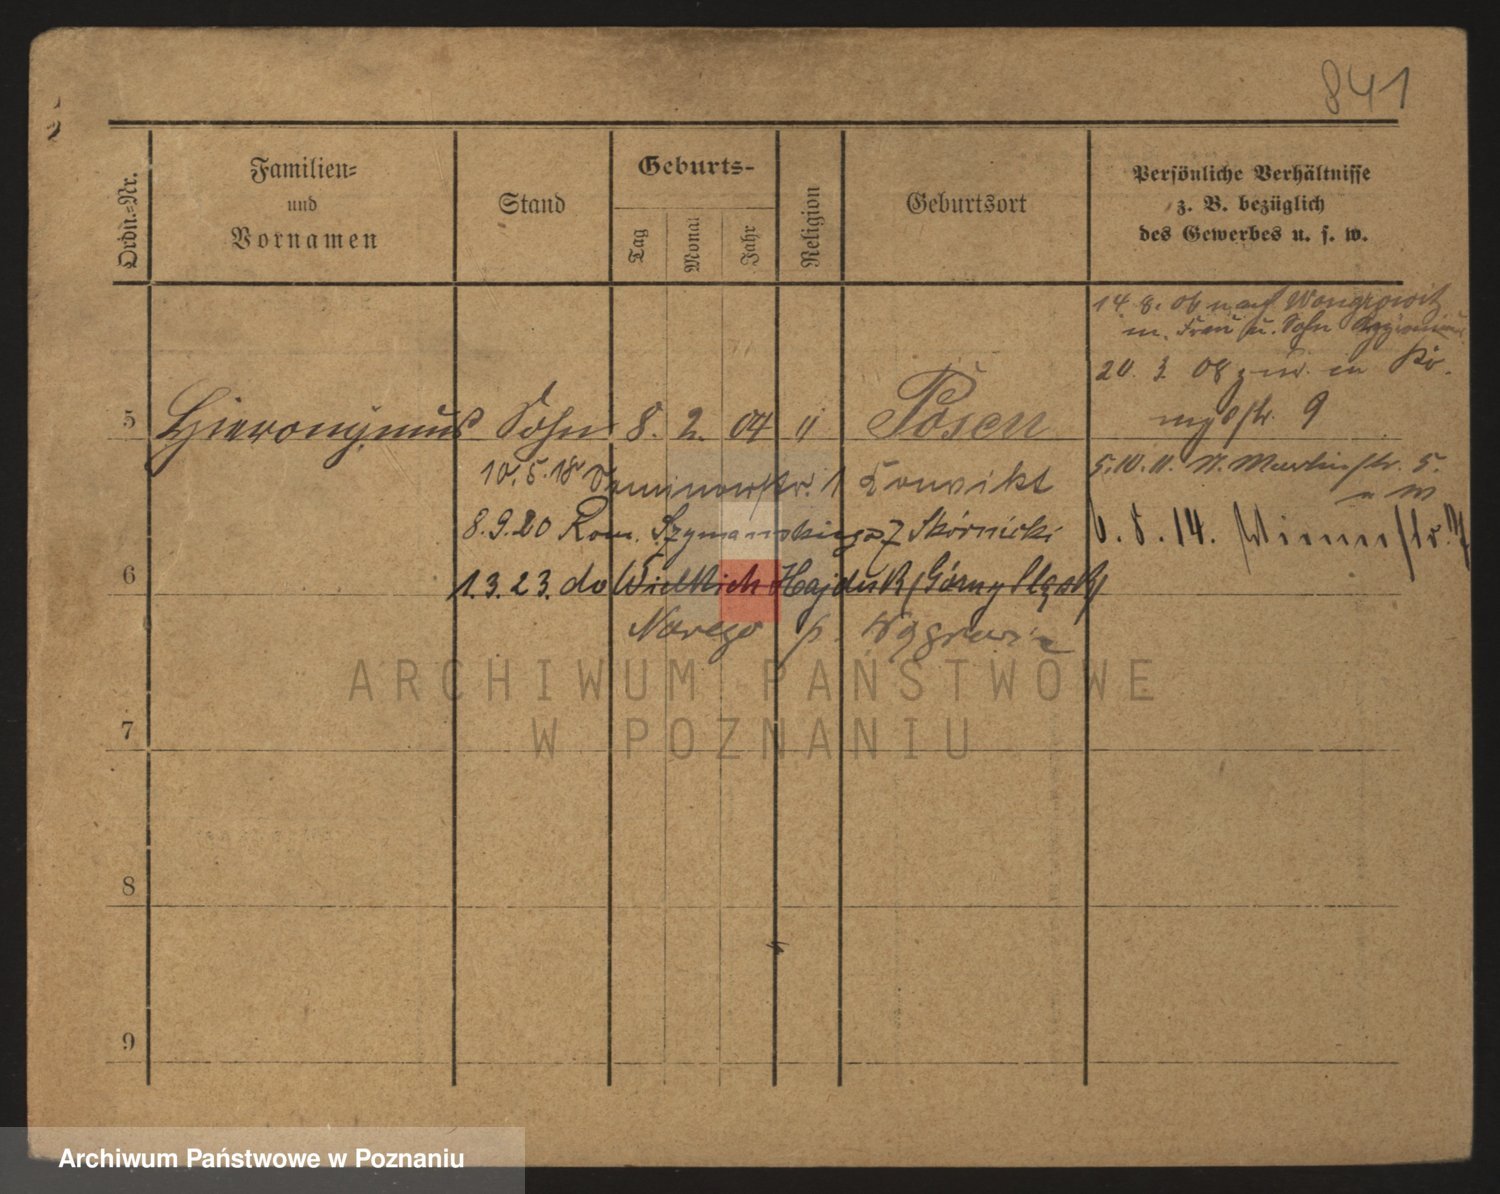 841
Ordn.-Nr.
Familien-
und
Vornamen
Stand
Geburts-
Tag
Monat
Jahr
Religion
Geburtsort
Persönliche Verhältnisse
z. B. bezüglich
des Gewerbes u. s. w.
14. 8. 06 nach Wongrowitz
m. Frau u. Sohn
20. 3. 08 zur. in Kö-
nigstr. 9
5 Hieronymus Sohn 8. 2. 04 " Posen
5.10.11. St. Martinstr. 5.
10.5.18 Seminarstr. 1 Konvikt
8.9.20 Rom. Szymańskiego 7 Skórnicki
6. 5. 14.
6
1.3.23. do Wielkich Hajduk (Górny Śląsk)
p. Wągrowiec
7
8
9
ARCHIWUM PAŃSTWOWE
W POZNANIU
Archiwum Państwowe w Poznaniu